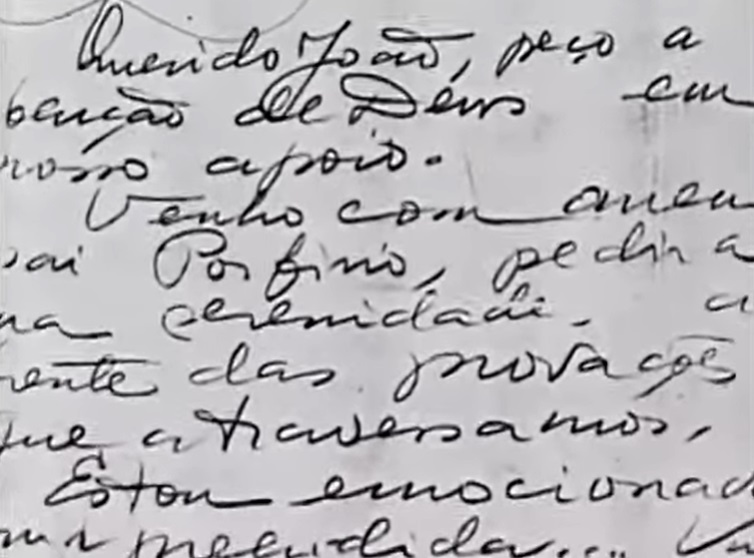 Querido João, peço a
benção de Deus em
nosso apoio.
Venho com o meu
pai Porfirio, pedir a
serenidade. a
frente das provações
que atravessamos,
Estou emocionad